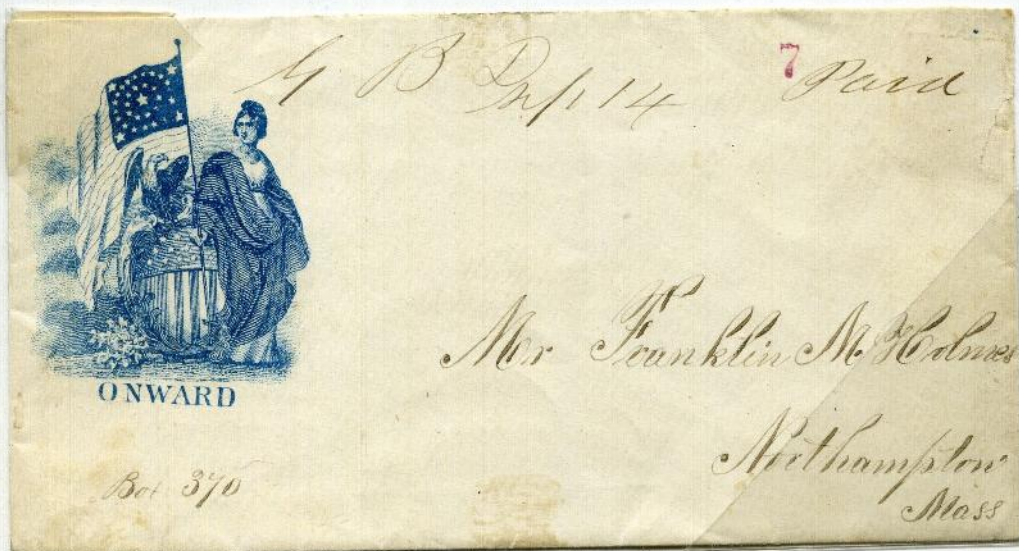 G B Sept 14 7 Paid
ONWARD
Mr Franklin M. Holmes
Northampton
Mass
Box 376